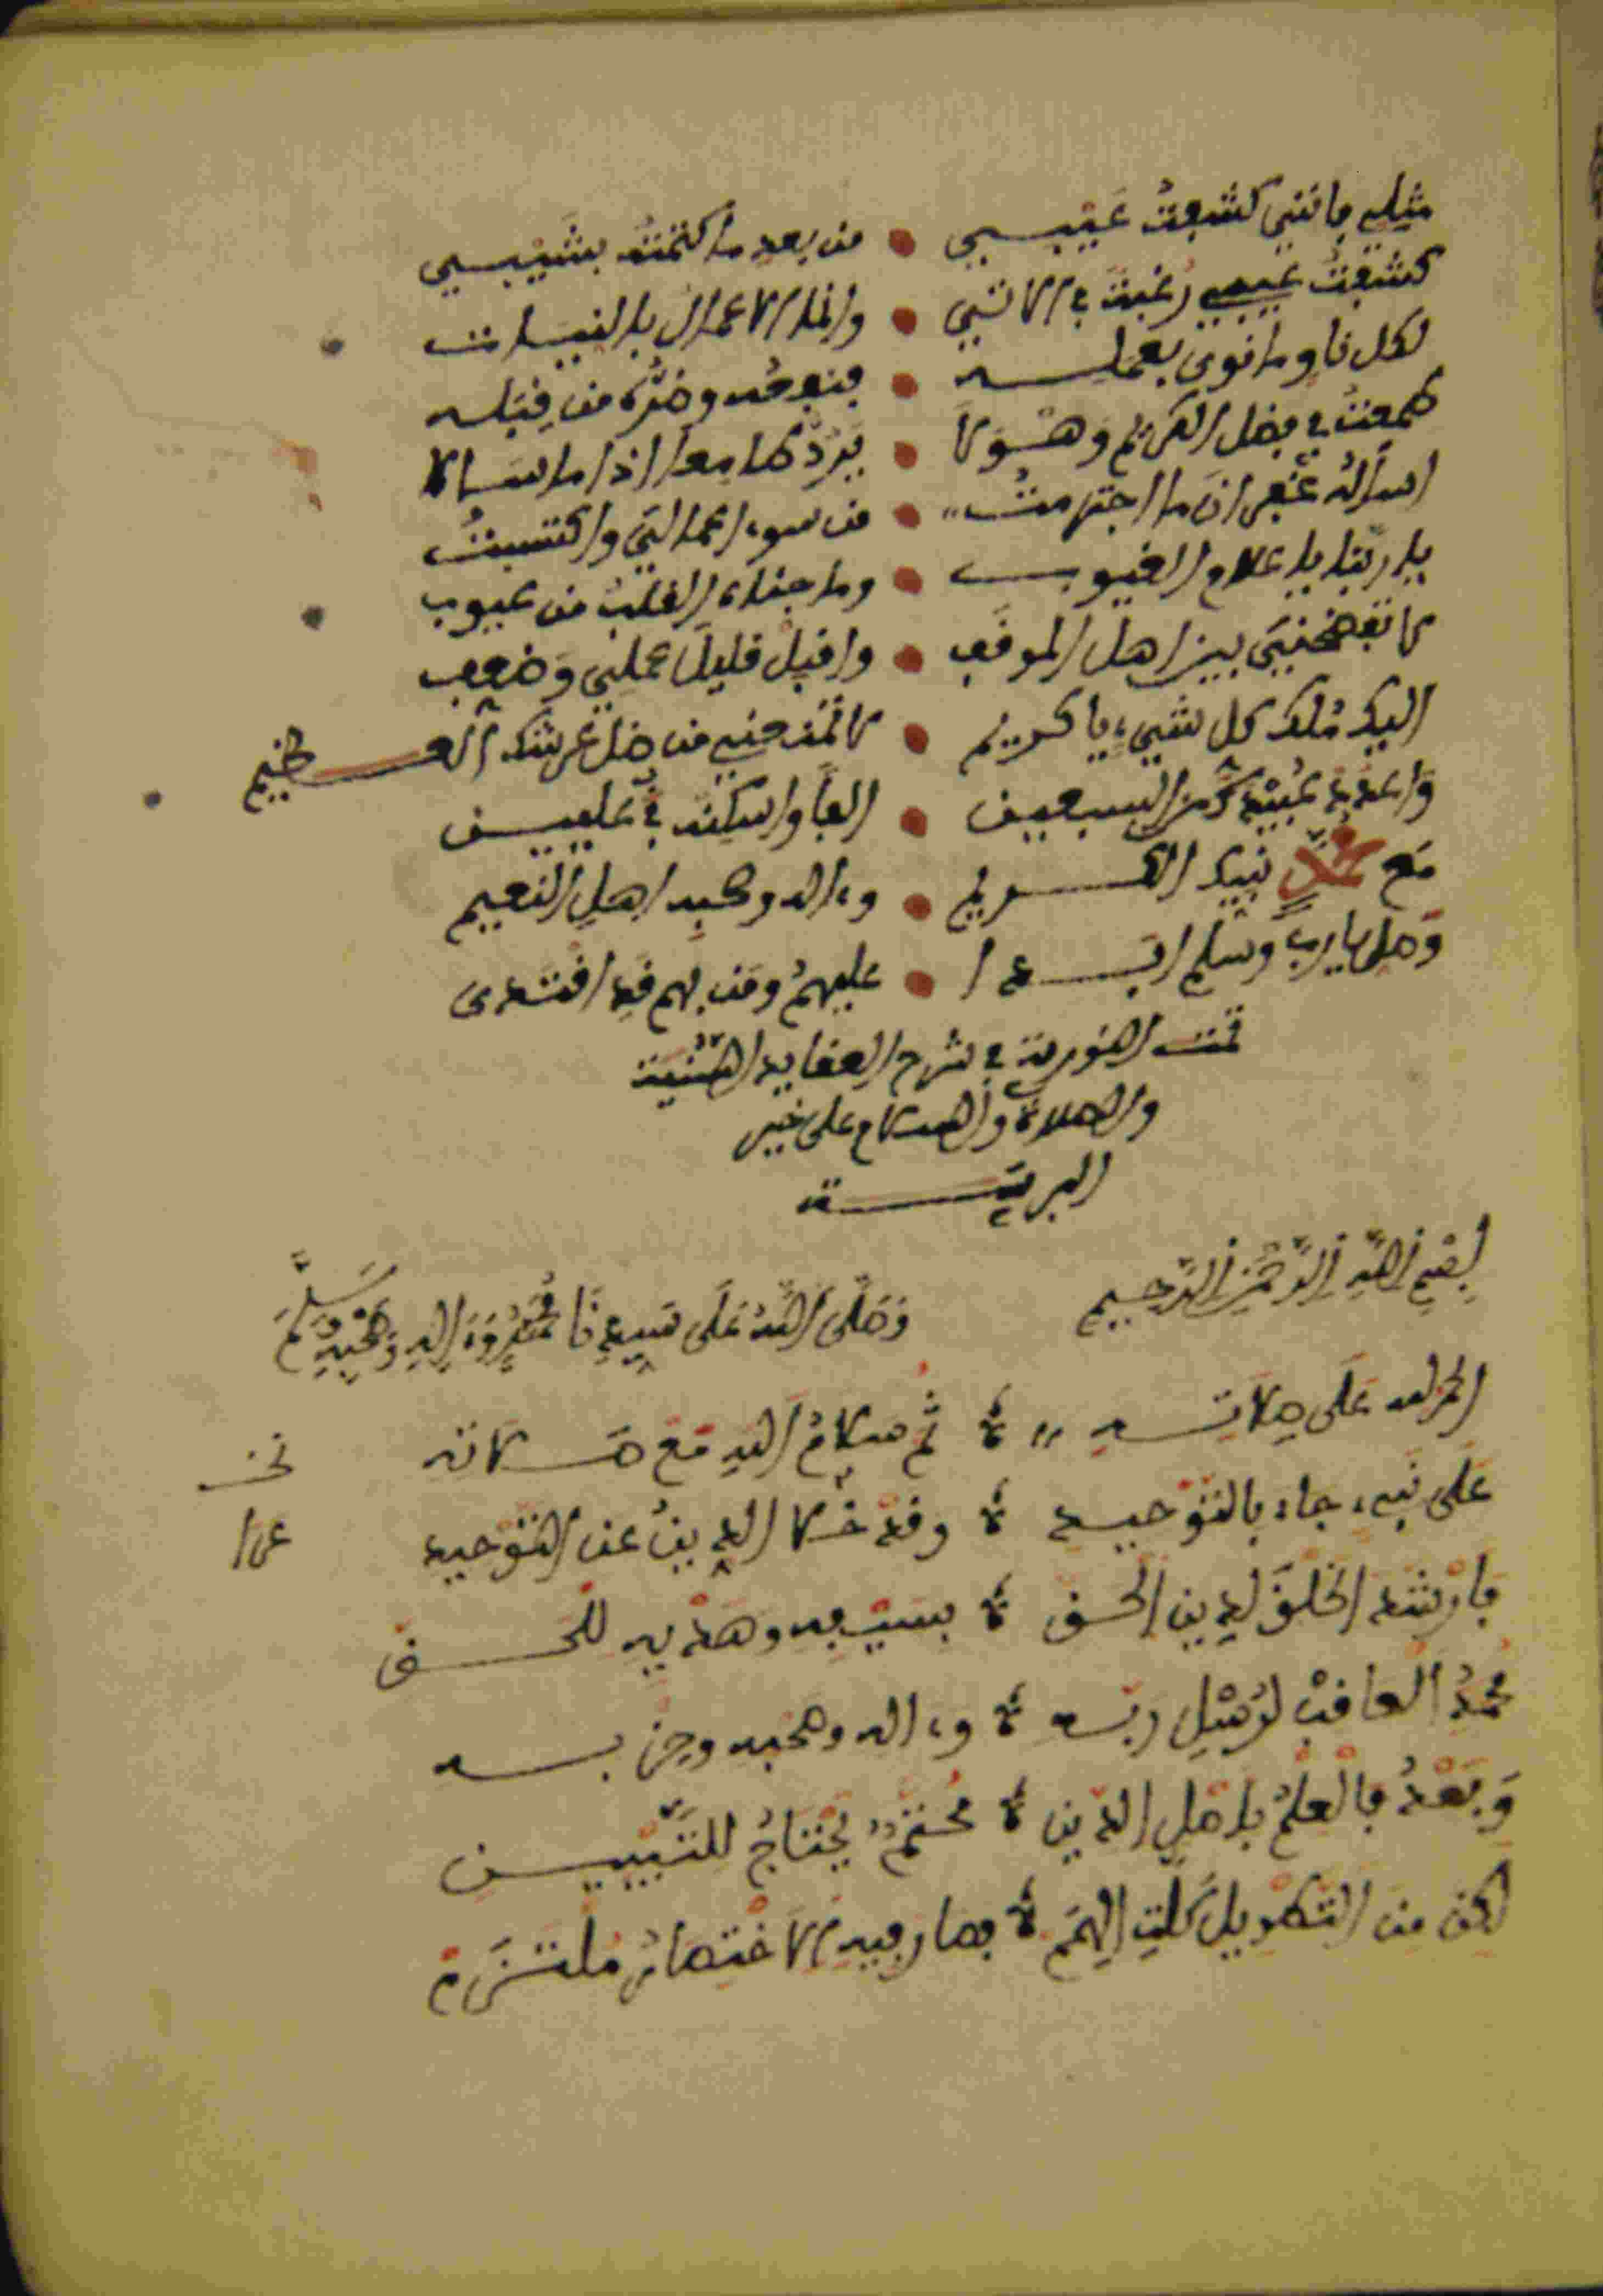 مثلي فإنني كشفت عيبي • من بعد ما كتمته بشيبي
كشفت عيبي رغبة في الاتي • وإنما الاعمال بالنيات
لكل ناو ما نوى بعمله • فنفعه وضره من قبله
طمعت في فضل الكريم وهو لا • يرد طامعا اذا ما سالا
اساله غفران ما اجترمت • من سوء اعمالي واكتسبت
يا ربنا يا علام الغيوب • وما جناه القلب من عيوب
لا تفضحني بين اهل الموقف • واقبل قليل عملي وضعف
اليك ملك كل شيء يا كريم • لا تمنعني من ظل عرشك العظيم
واعدد عبيدك من السبعين • الفا واسكنه في عليين
مع محمد نبيك الكريم • وءاله وصحبه اهل النعيم
وصل يا رب وسلم ابدا • عليهم ومن بهم قد اقتدى
تمت النورية في شرح العقايد السنية
والصلاة والسلام على خير
البرية
بسم الله الرحمن الرحيم وصلى الله على سيدنا محمد وءاله وصحبه وسلم
الحمد لله على صلاته ثم سلام الله مع صلاته
على نبيء جاء بالتوحيد وقد خلا الدين عن التوحيد
فارشد الخلق لدين الحق بسيفه وهديه للحق
محمد العاقب لرسل ربه وءاله وصحبه وحزبه
وبعد فالعلم باصل الدين محتم يحتاج للتبيين
لكن من التطويل كلت الهمم فصار فيه الاختصار ملتزم